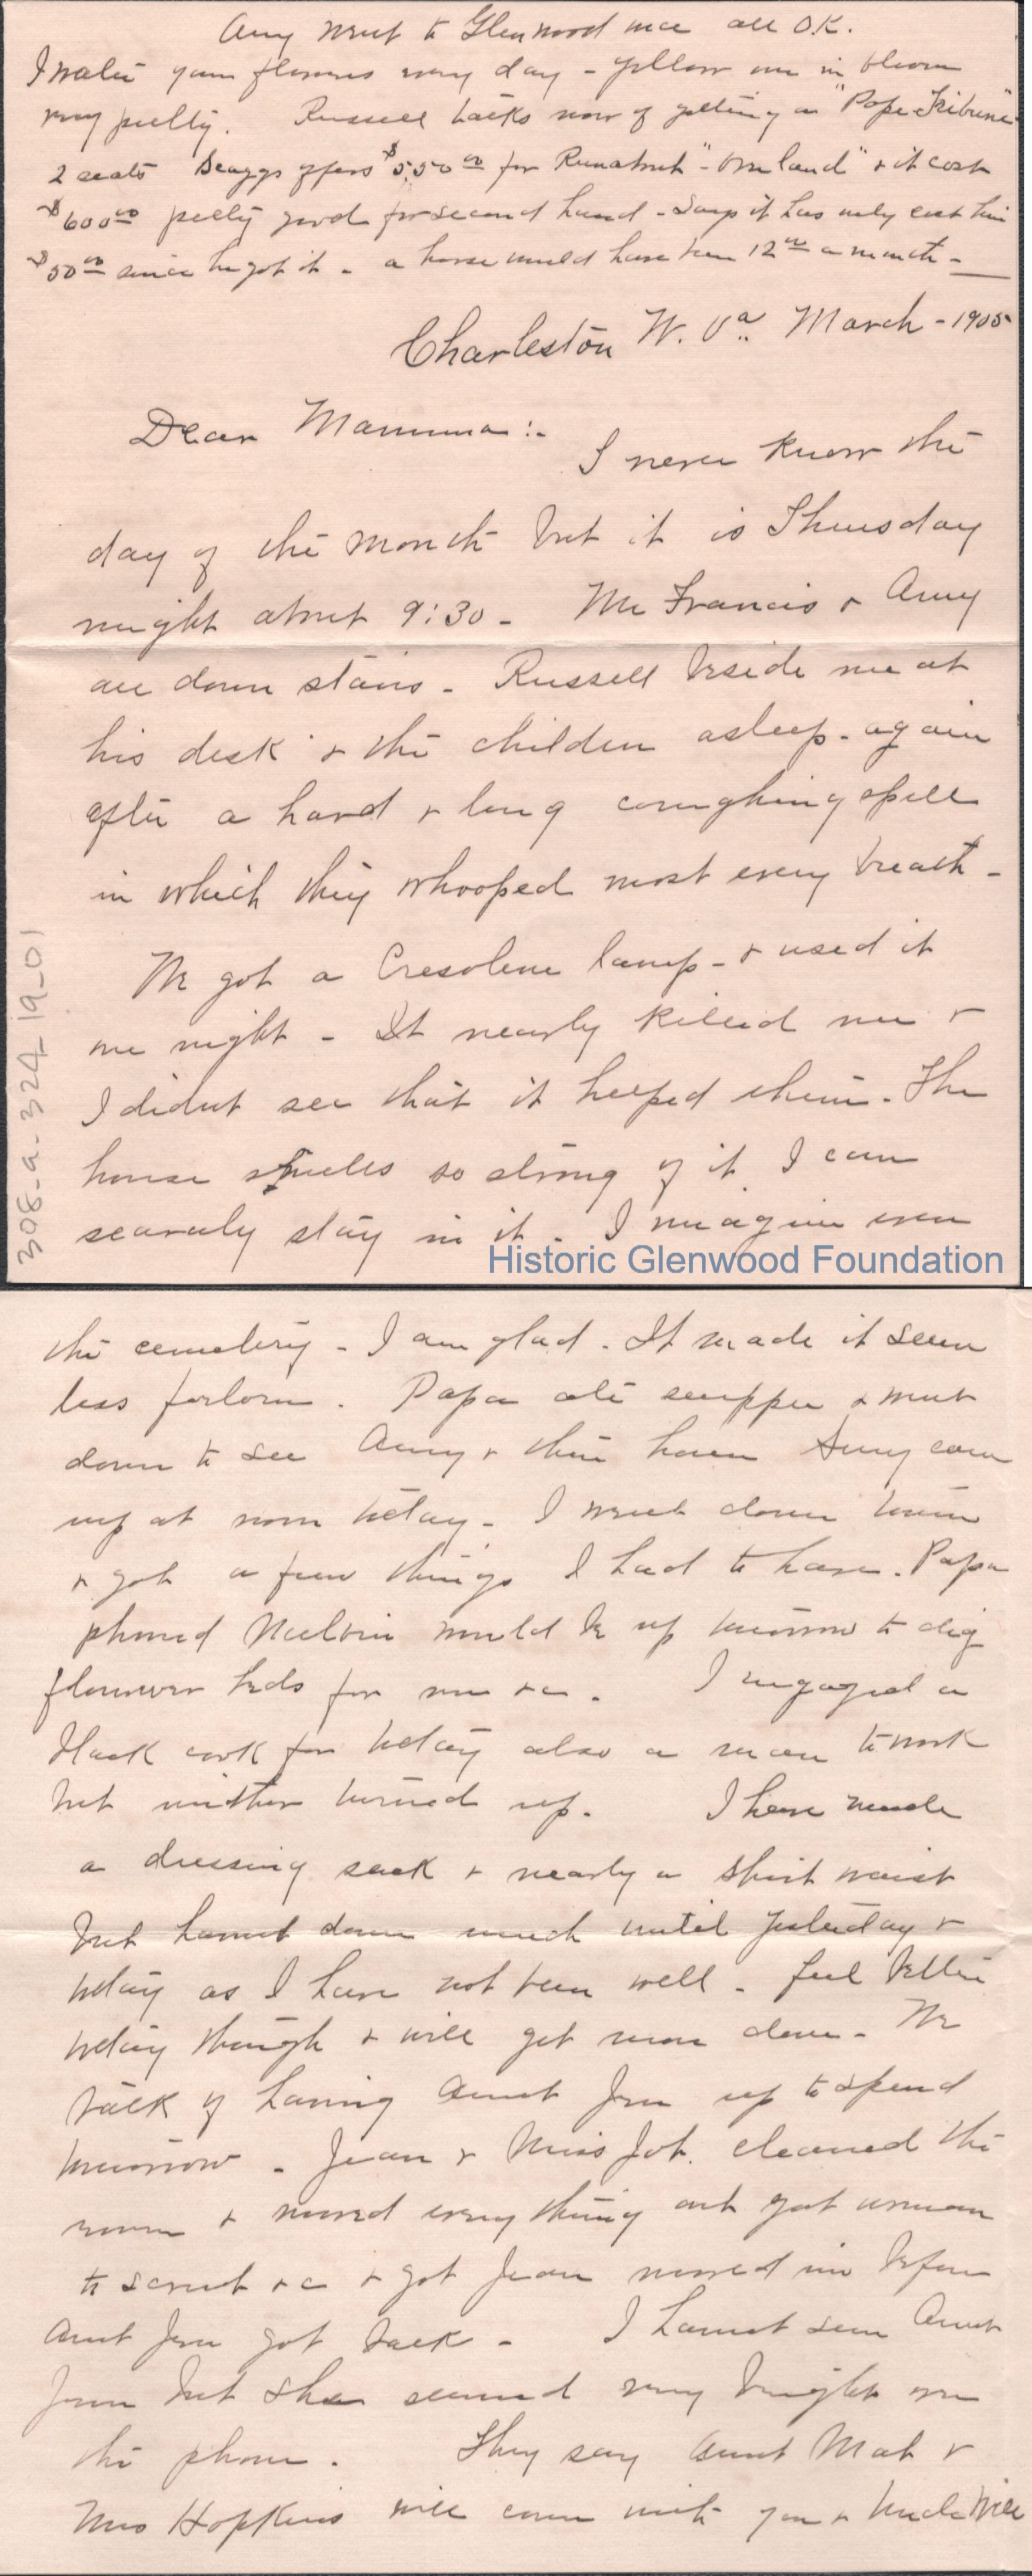 Amy went to Glenwood once all O.K.
I water your flowers every day - yellow one in bloom
very pretty. Russell talks now of getting a "Pope-Tribune"
2 seats Scaggs offers $550.00 for Runabout - "Omland" & it cost
$600.00 pretty good for second hand - Says it has only cost him
$50.00 since he got it - a horse would have been 12.00 a month -
Charleston W. Va. March - 1905
Dear Mamma :-
I never know the
day of the month but it is Thursday
night about 9:30 - Mr Francis & Amy
are down stairs - Russell beside me at
his desk & the children asleep - again
after a hard & long coughing spell
in which they whooped most every breath -
We got a Cresolene lamp - & used it
one night - It nearly killed me &
I didnt see that it helped them. The
house smells so strong of it I can
scarcely stay in it. I imagine even
308-a-324-19-01
Historic Glenwood Foundation
the cemetery - I am glad. It made it seem
less forlorn. Papa ate supper & went
down to see Amy & then home Amy came
up at noon today - I went down town
& got a few things I had to have. Papa
phoned Melvin would be up tomorrow to dig
flower beds for me &c. I engaged a
black cook for today also a man to work
but neither turned up. I have made
a dressing sack & nearly a shirt waist
but havnt done much until yesterday &
today as I have not been well - feel better
today though & will get more done - We
talk of having Aunt Jen up to spend
tomorrow - Jean & Miss Jot. cleaned the
room & moved every thing out got woman
to scrub &c & got Jean moved in before
Aunt Jen got back - I havnt seen Aunt
Jen but she seemed very bright over
the phone. They say Aunt Mat &
Mrs Hopkins will come with you & Uncle Will